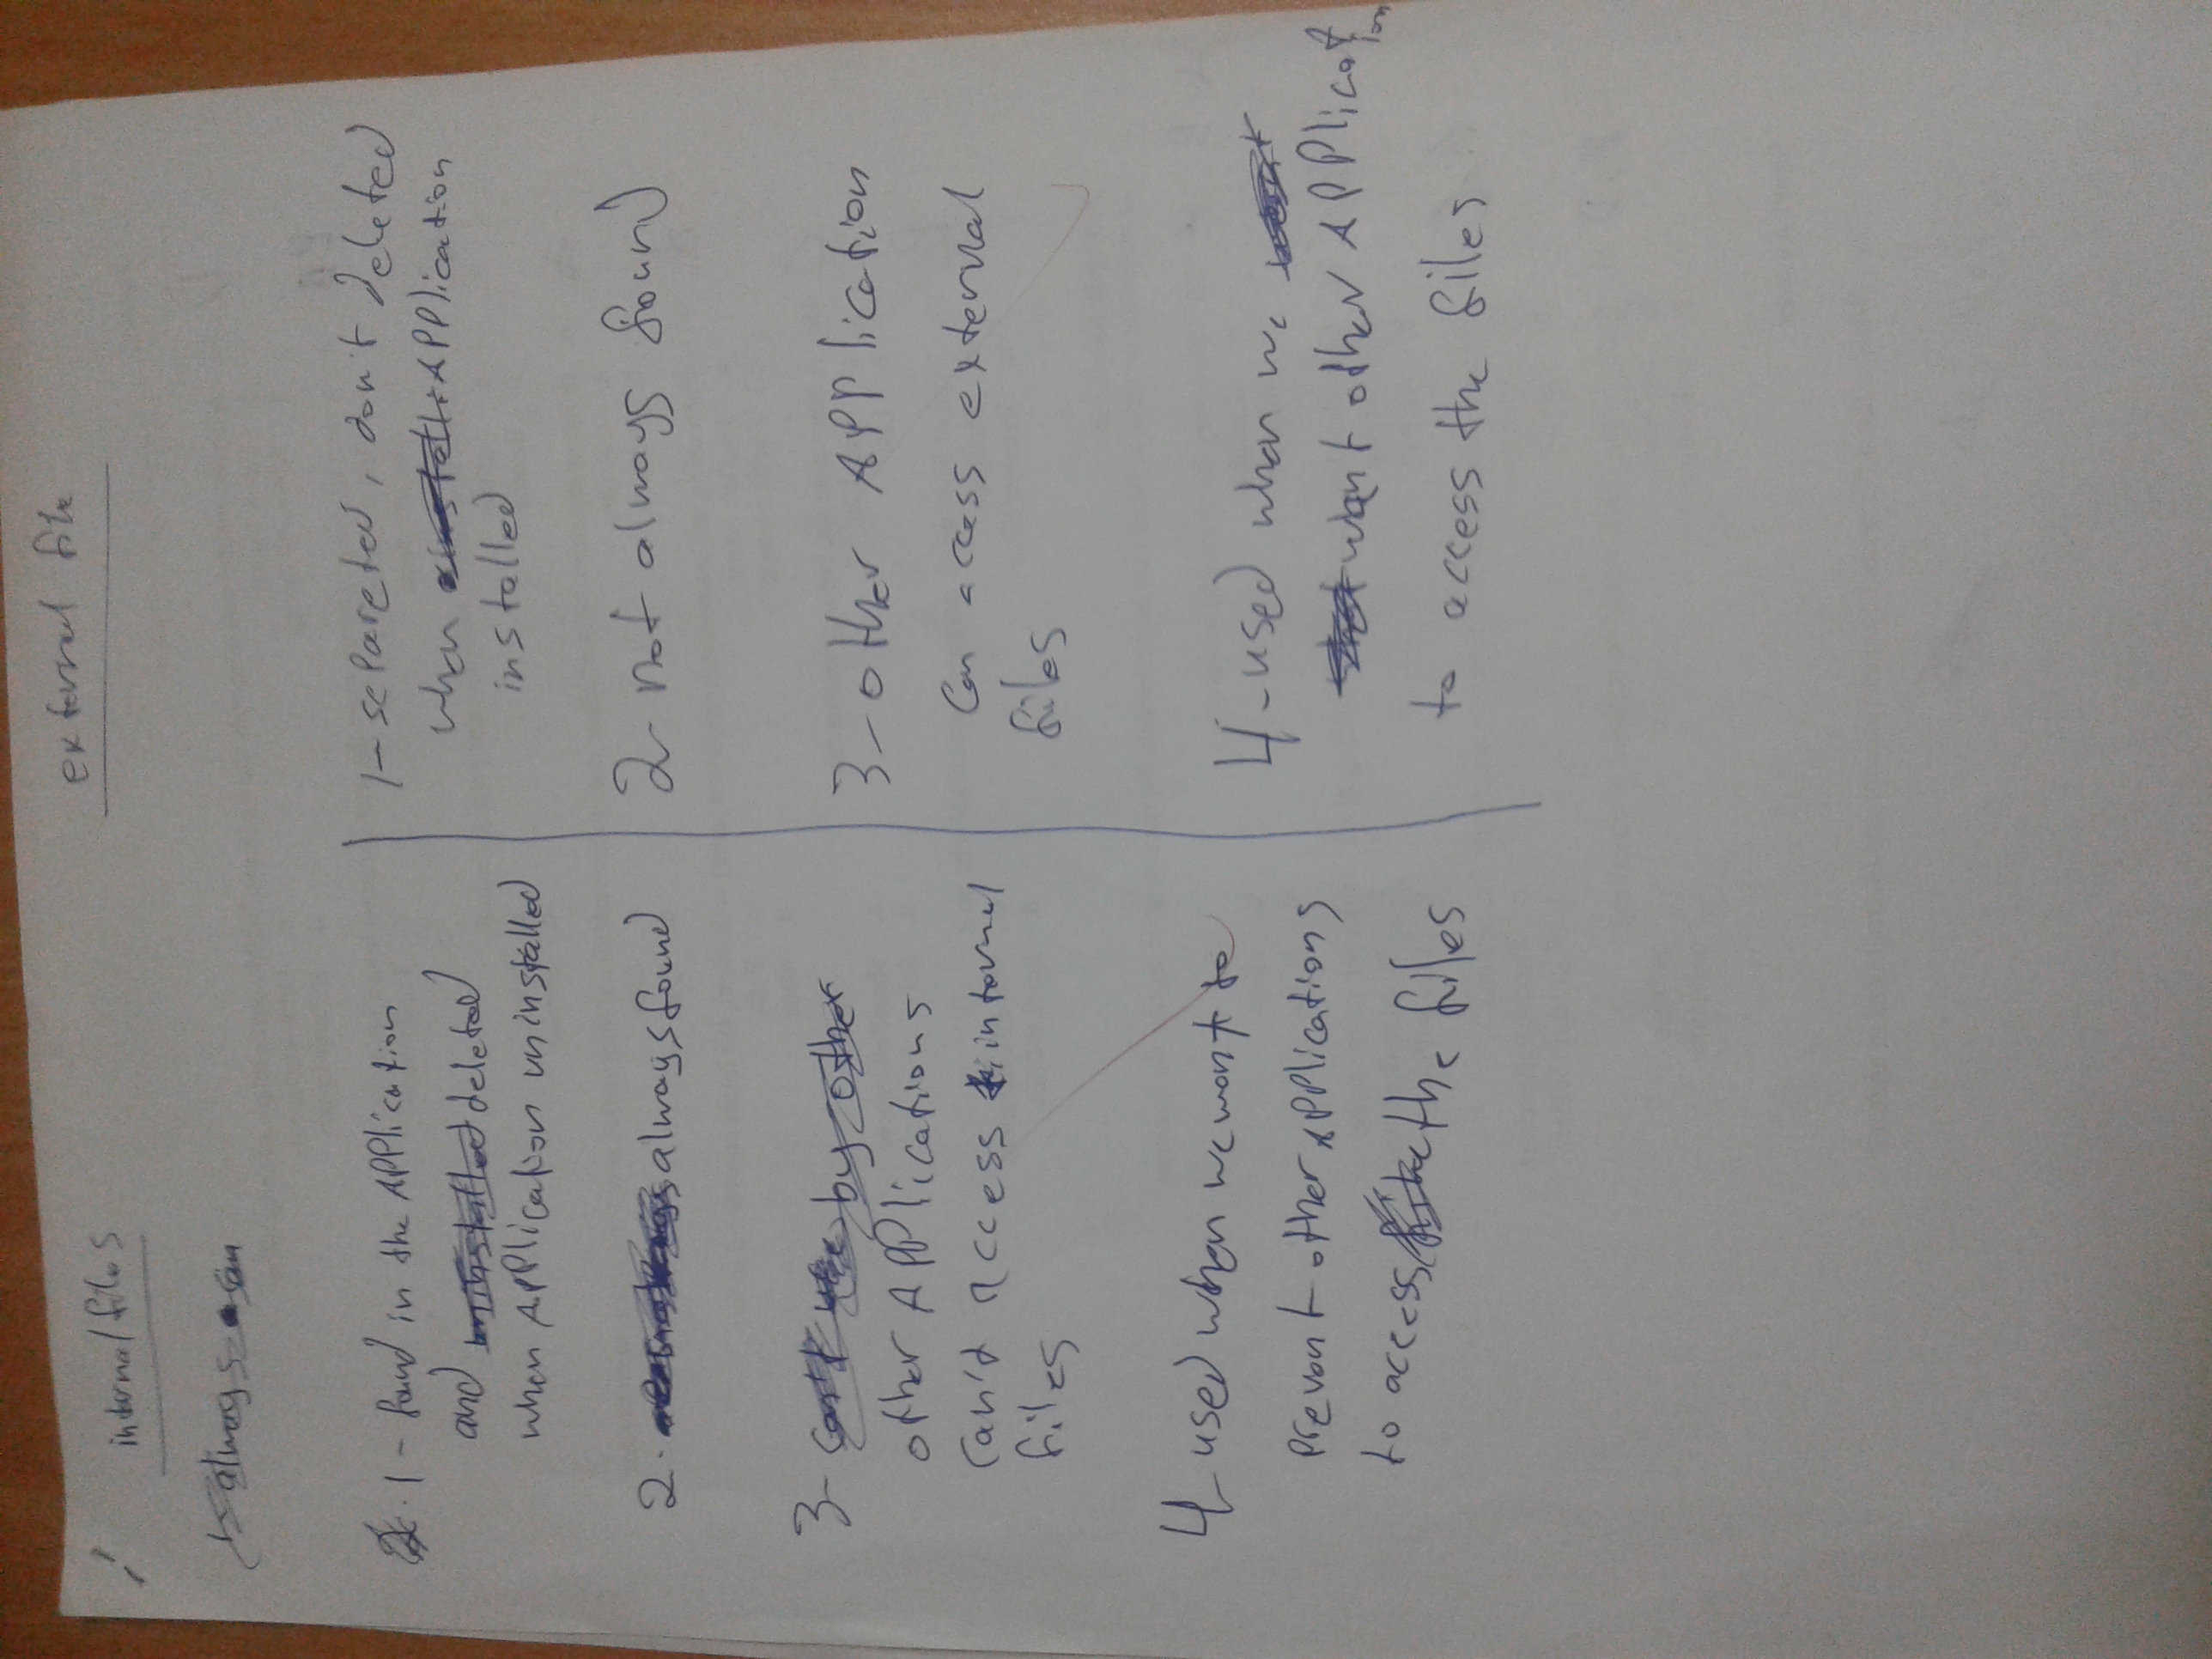 internal files
external file
1- always in
1- found in the APPlication
and uninstalled deleted
when APPlication uninstalled
2- always found
3- can't use by other
other APPlications
can't access internal
files
4- used when we want to
Prevent other APPlications
to access the files
1- separeted, don't deleted
when APPlication
installed
2- not always found
3- other APPlication
can access external
files
4- used when we
want other APPlication
to access the files